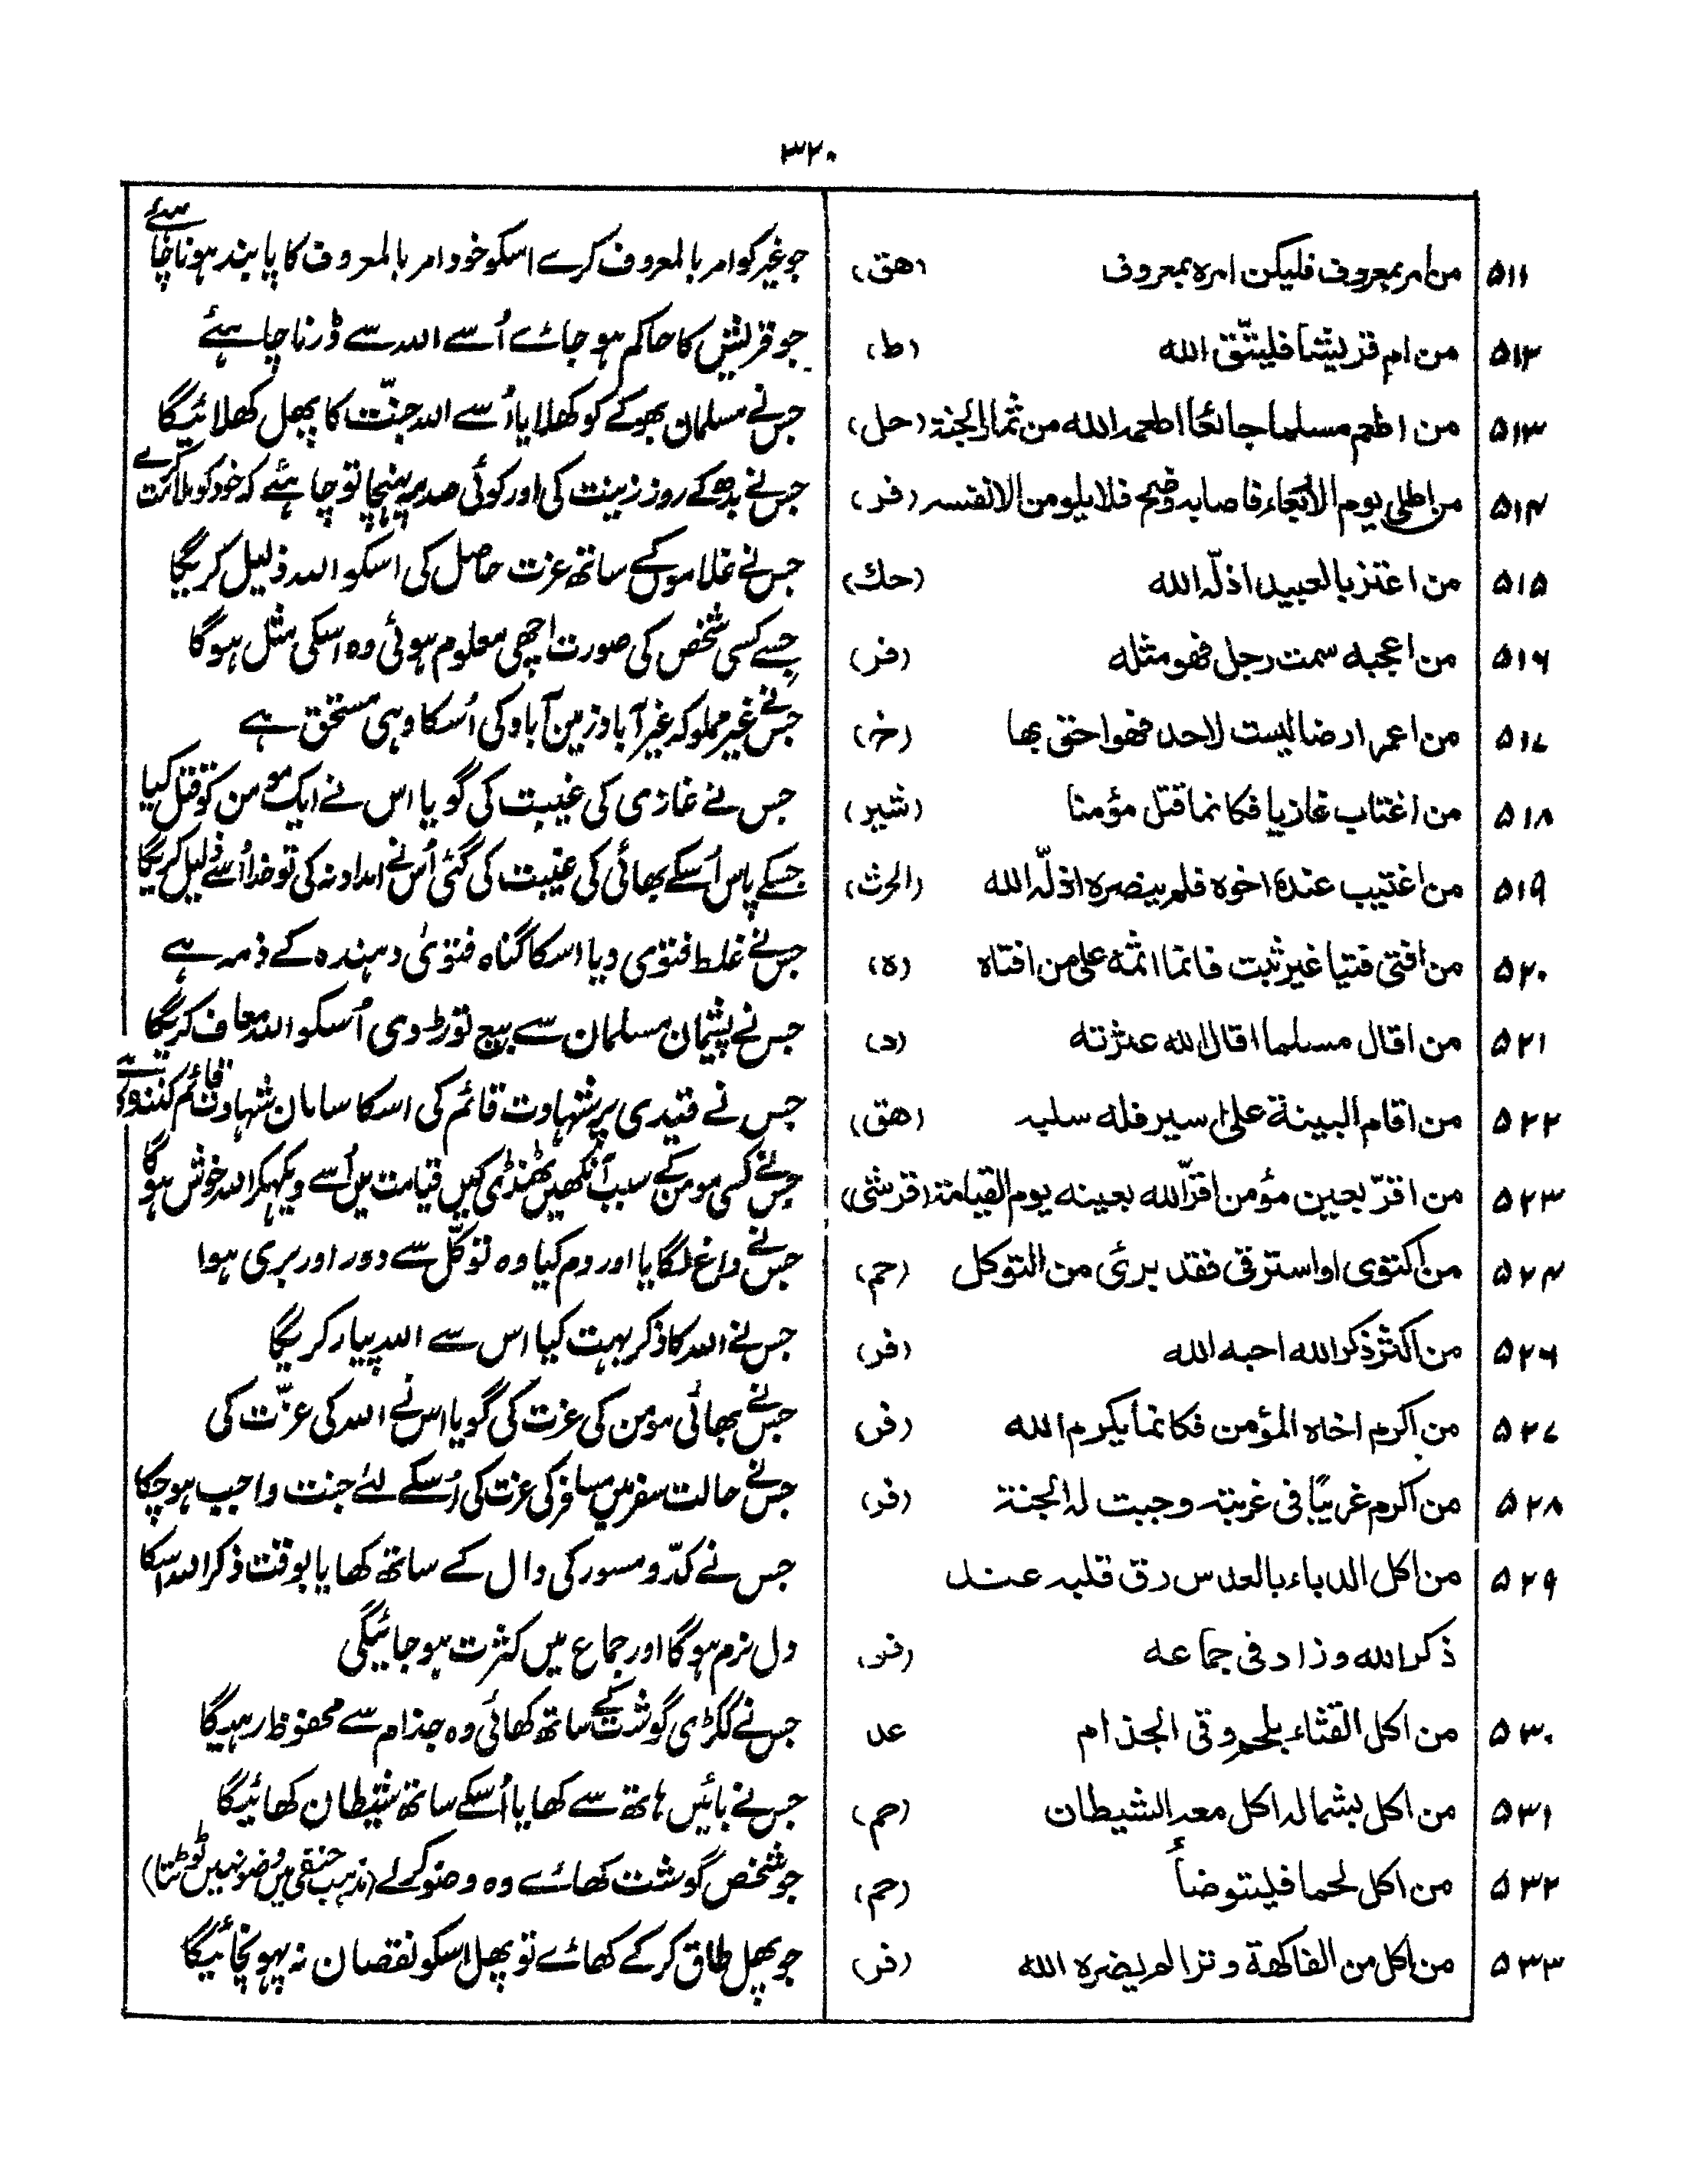 ۳۲۰
۵۱۱ من امر بمعروف فليكن امره بمعروف (هق) جو غیر کو امر بالمعروف کرے اسکو خود امر بالمعروف کا پابند ہونا چاہئے
۵۱۲ من ام قريشا فليتّق الله (ط) جو قریش کا حاکم ہو جائے اُسے اللہ سے ڈرنا چاہئے
۵۱۳ من اطعم مسلما جائعا اطعمه الله من ثمار الجنة (حل) جس نے مسلمان بھوکے کو کھلایا اُسے اللہ جنّت کا پھل کھلائیگا
۵۱۴ من اطلى يوم الاربعاء فاصابه وضح فلا يلومن الا نفسه (فر) جس نے بدھ کے روز زینت کی اور کوئی صدمہ پہنچا تو چاہئے کہ خود کو ملامت کرے
۵۱۵ من اعتز بالعبيد اذلّه الله (حك) جس نے غلاموں کے ساتھ عزت حاصل کی اسکو اللہ ذلیل کریگا
۵۱۶ من اعجبه سمت رجل فهو مثله (فر) جسے کسی شخص کی صورت اچھی معلوم ہوئی وہ اسکی مثل ہو گا
۵۱۷ من اعمر ارضا ليست لاحد فهو احق بها (خ) جس نے غیر مملوکہ غیر آباد زمین آباد کی اُسکا وہی مستحق ہے
۵۱۸ من اغتاب غازيا فكانما قتل مؤمنا (شیر) جس نے غازی کی غیبت کی گویا اس نے ایک مومن کو قتل کیا
۵۱۹ من اغتيب عنده اخوه فلم ينصره اذلّه الله (الحرث) جسکے پاس اُسکے بھائی کی غیبت کی گئی اُس نے امداد نہ کی تو خدا اُسے ذلیل کریگا
۵۲۰ من افتى فتيا غير ثبت فانما اثمه على من افتاه (ه) جس نے غلط فتوی دیا اسکا گناہ فتویٰ دہندہ کے ذمہ ہے
۵۲۱ من اقال مسلما اقال الله عثرته (د) جس نے پشیمان مسلمان سے بیع توڑ دی اُسکو اللہ معاف کریگا
۵۲۲ من اقام البينة على اسير فله سلبه (هق) جس نے قیدی پر شہادت قائم کی اسکا سامان شہادت قائم کنندہ کا ہے
۵۲۳ من اقرّ بعين مؤمن اقرّ الله بعينه يوم القيامة (قرشی) جس نے کسی مومن کے سبب آنکھیں ٹھنڈی کیں قیامت میں اُسے دیکھکر اللہ خوش ہو گا
۵۲۴ من اكتوى او استرقى فقد برئ من التوكل (حم) جس نے داغ لگایا اور دم کیا وہ توکّل سے دور اور بری ہوا
۵۲۶ من اكثر ذكر الله احبه الله (فر) جس نے اللہ کا ذکر بہت کیا اس سے اللہ پیار کریگا
۵۲۷ من اكرم اخاه المؤمن فكانما يكرم الله (فر) جس نے بھائی مومن کی عزت کی گویا اس نے اللہ کی عزّت کی
۵۲۸ من اكرم غريبًا فى غربته وجبت له الجنة (فر) جس نے حالت سفر میں مسافر کی عزت کی اُسکے لئے جنت واجب ہو چکا
۵۲۹ من اكل الدباء بالعدس رق قلبه عند جس نے کدّو مسور کی دال کے ساتھ کھایا بوقت ذکر اللہ اسکا
ذكر الله وزاد فى جماعه (فر) دل نرم ہو گا اور جماع میں کثرت ہو جائیگی
۵۳۰ من اكل القثاء بلحم وقى الجذام عد جس نے ککڑی گوشت کے ساتھ کھائی وہ جذام سے محفوظ رہیگا
۵۳۱ من اكل بشماله اكل معه الشيطان (حم) جس نے بائیں ہاتھ سے کھایا اُسکے ساتھ شیطان کھائیگا
۵۳۲ من اكل لحما فليتوضأ (حم) جو شخص گوشت کھائے وہ وضو کرلے (مذہب حنفی میں وضو نہیں ٹوٹتا)
۵۳۳ من اكل من الفاكهة وترا لم يضره الله (فر) جو پھل طاق کر کے کھائے تو پھل اسکو نقصان نہ پہونچائیگا